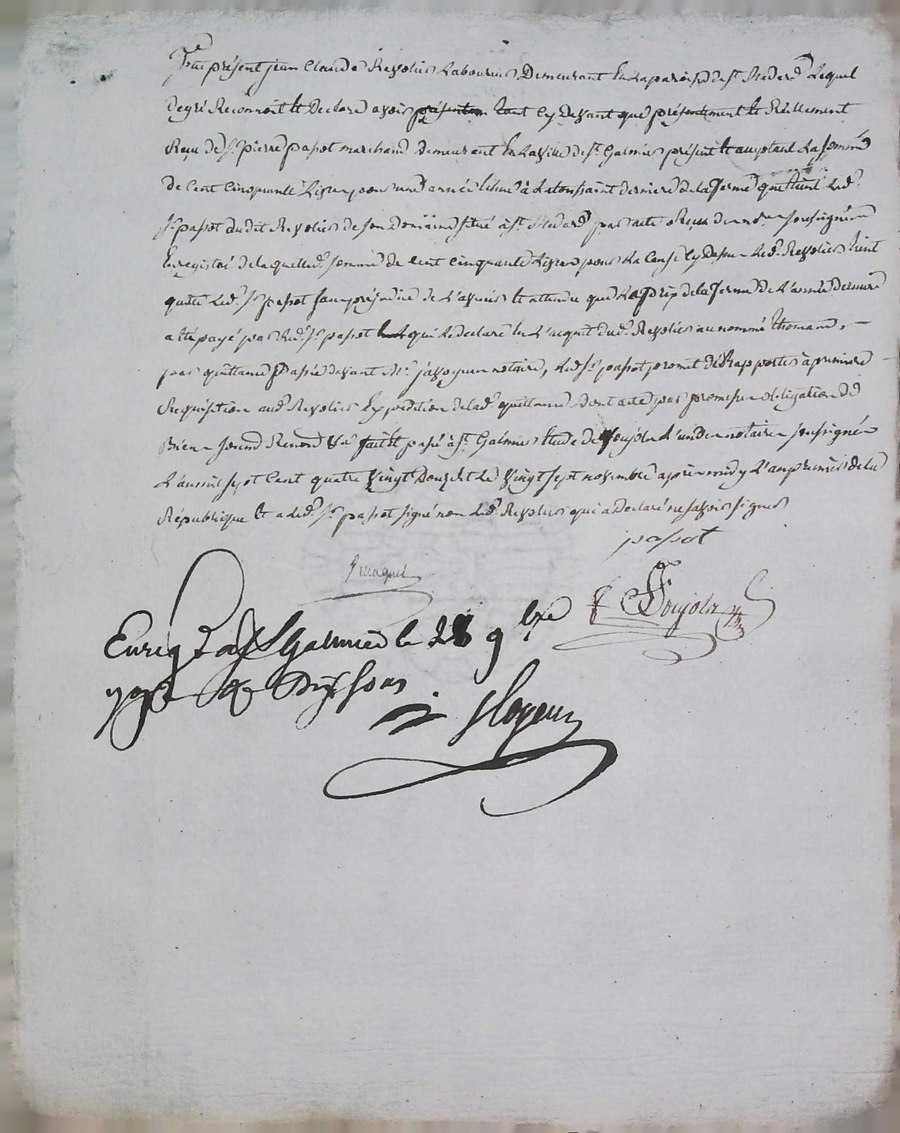 Fut présent jean Claude Revolier Laboureur Demeurant En La paroisse de st Medard Lequel
de gré Reconnoit Et Declare avoir présentem tant Cy Devant que présentement Et Réellement
Reçu de sr pierre pasot marchand demeurant En La ville de st Galmier présent Et acceptant La somme
De Cent Cinquante Livres pour une année Echue à La toussaint derniere de la ferme que tient Led.
sr pasot dudit Revolier de son Domaine situé à st Medard par acte Reçu du notre soussigné
Enregistré de laquelle somme de Cent Cinquante Livres pour La Cause Cy Dessus Led. Revolier tient
quitte Led. sr pasot sans préjudice de L'avenir Et attendu que Le prix de la ferme de L'année derniere
a Eté payé par Led. sr pasot qui Le declare En L'acquit dud. Revolier au nommé thomand,
par quittance Passée devant Me notaire, Led. sr pasot promet de Rapporter à premiere
Requisition aud. Revolier Expedition de lad. quittance Dont acte par promesse obligation de
Biens soumis Renond &a fait Et passé à st Galmier Etude de soujola L'un des notaires soussigné
L'an mil sept Cent quatre vingt Douze Et Le vingt sept novembre après midy L'an premier de la
République Et a Led. sr pasot signé non Led. Revolier qui a declaré ne savoir signer
pasot
Soujola
Enregt à st Galmier le 28 9bre
1792 Rç Dix sous